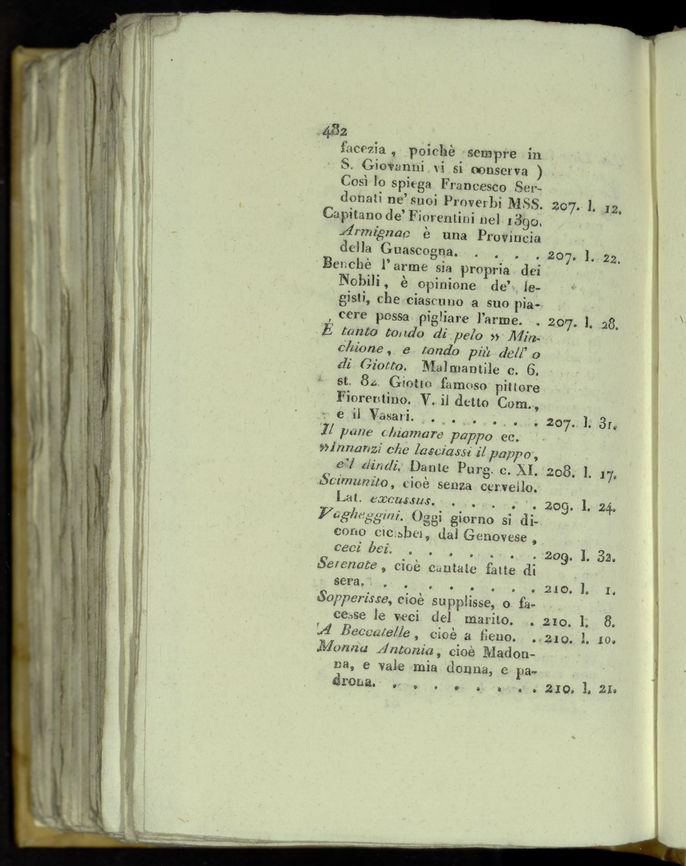 482
facezia, poichè sempre in
S. Giovanni vi si conserva )
Così lo spiega Francesco Ser-
donati ne' suoi Proverbi MSS. 207. l. 12.
Capitano de' Fiorentini nel 1390.
Armignac è una Provincia
della Guascogna. . . . . . 207. l. 22.
Benchè l'arme sia propria dei
Nobili, è opinione de' le-
gisti, che ciascuno a suo pia-
cere possa pigliare l'arme. . 207. l. 28.
È tanto tondo di pelo » Min-
chione, e tondo più dell' o
di Giotto. Malmantile c. 6.
st. 82. Giotto famoso pittore
Fiorentino. V. il detto Com.,
e il Vasari. . . . . . . . 207. l. 31.
Il pane chiamare pappo ec.
»Innanzi che lasciassi il pappo,
e'l dindi. Dante Purg. c. XI. 208. l. 17.
Scimunito, cioè senza cervello.
Lat. excussus. . . . . . . 209. l. 24.
Vagheggini. Oggi giorno si di-
cono cicisbei, dal Genovese,
ceci bei. . . . . . . . . 209. l. 32.
Serenate, cioè cantate fatte di
sera. . . . . . . . . . 210. l. 1.
Sopperisse, cioè supplisse, o fa-
cesse le veci del marito. . 210. l. 8.
A Beccatelle, cioè a fieno. . . 210. l. 10.
Monna Antonia, cioè Madon-
na, e vale mia donna, e pa-
drona. . . . . . . . . 210. l. 21.